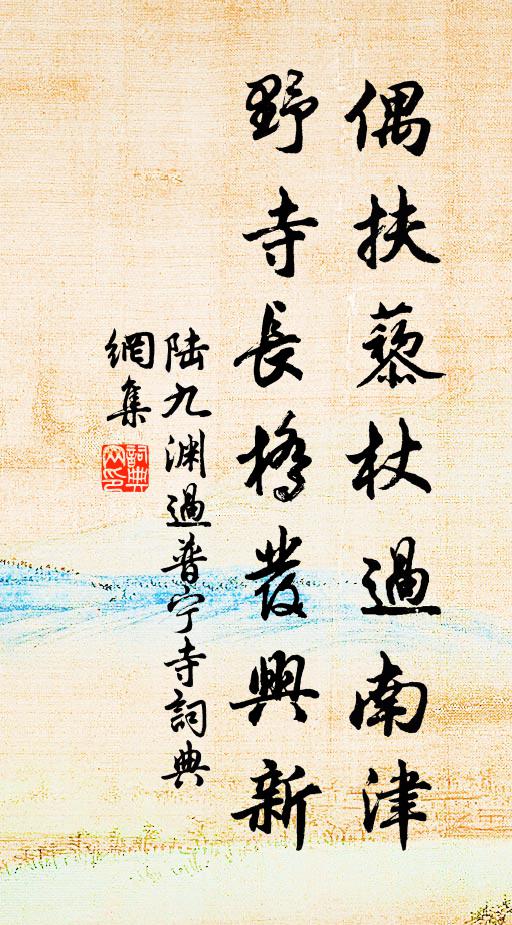 偶扶藜杖過南津
野寺長橋發興新
陆九渊過普宁寺詞典
網集
詞典
网印